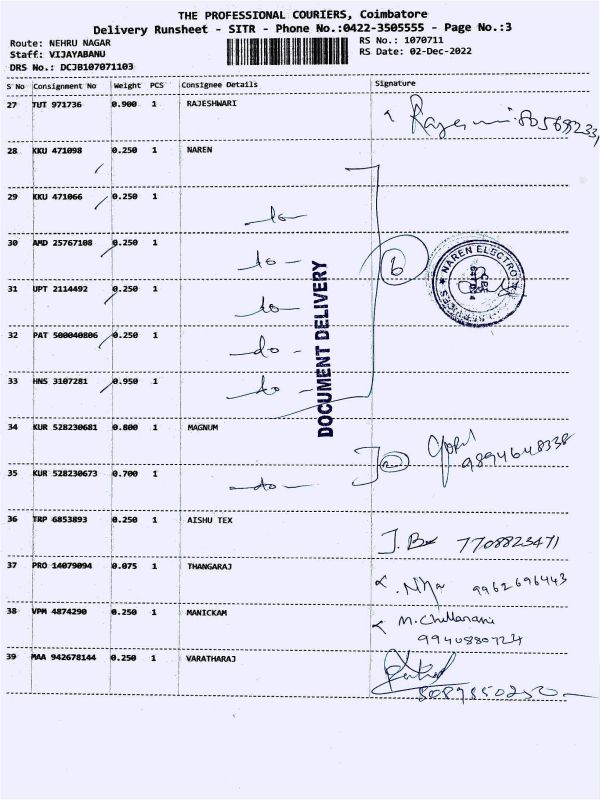 THE PROFESSIONAL COURIERS, Coimbatore
Delivery Runsheet - SITR - Phone No.:0422-3505555 - Page No.:3
Route: NEHRU NAGAR
RS No.: 1070711
Staff: VIJAYABANU
RS Date: 02-Dec-2022
DRS No.: DCJB107071103
S No Consignment No Weight PCS Consignee Details Signature
27 TUT 971736 0.900 1 RAJESHWARI
28 KKU 471098 0.250 1 NAREN
29 KKU 471066 0.250 1
-do-
30 AMD 25767108 0.250 1
-do-
6
NAREN ELECTRO
SERVICES
31 UPT 2114492 0.250 1
-do-
DOCUMENT DELIVERY
32 PAT 500040806 0.250 1
-do-
33 HNS 3107281 0.950 1
-do-
34 KUR 528230681 0.800 1 MAGNUM
9894648338
35 KUR 528230673 0.700 1
-do-
36 TRP 6853893 0.250 1 AISHU TEX
7708823471
37 PRO 14079094 0.075 1 THANGARAJ
9962696443
38 VPM 4874290 0.250 1 MANICKAM
9940880724
39 MAA 942678144 0.250 1 VARATHARAJ